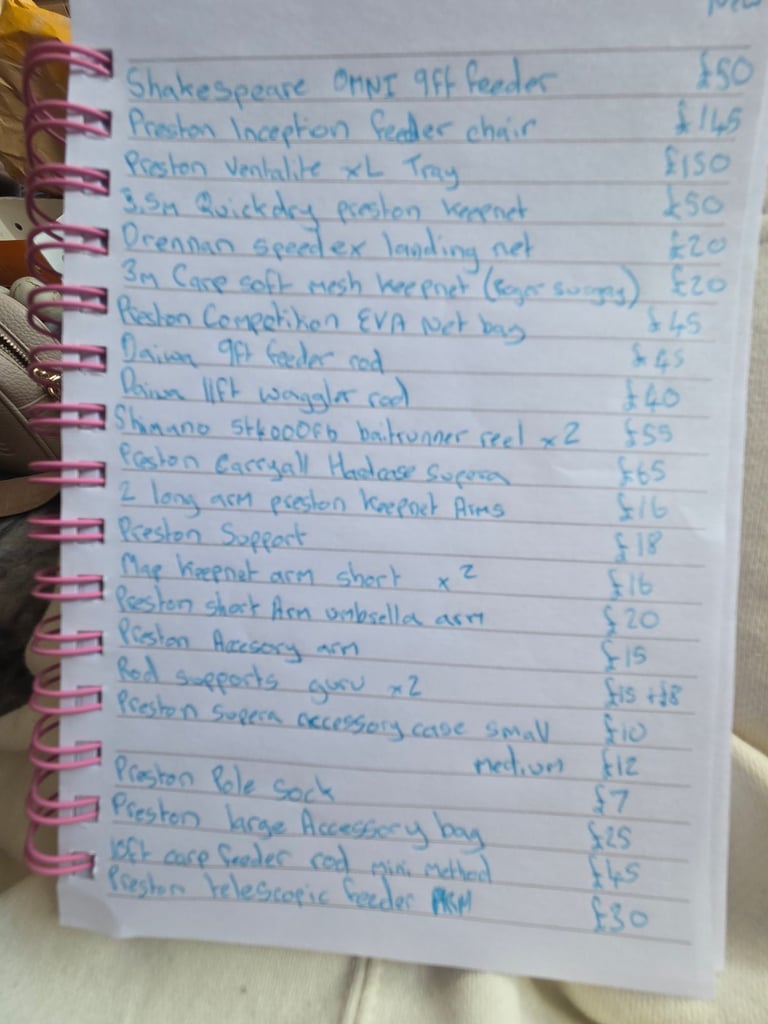 New
Shakespeare OMNI 9ft feeder £50
Preston Inception feeder chair £145
Preston Ventalite XL Tray £150
3.5m Quickdry preston keepnet £50
Drennan speedex landing net £20
3m Carp soft mesh keepnet (Roger surgay) £20
Preston Competition EVA Net bag £45
Daiwa 9ft feeder rod £45
Daiwa 11ft waggler rod £40
Shimano St4000fb baitrunner reel x2 £55
Preston Carryall Hardcase Supera £65
2 long arm preston keepnet Arms £16
Preston Support £18
Map keepnet arm short x2 £16
Preston short Arm umbrella arm £20
Preston Accesory arm £15
Rod supports guru x2 £15 + £8
Preston supera accessory case small £10
medium £12
Preston Pole sock £7
Preston large Accessory bag £25
10ft carp feeder rod mini method £45
Preston telescopic feeder ARM £30